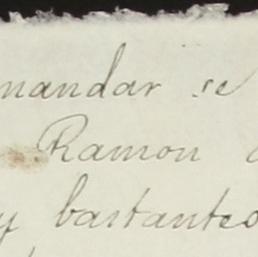 mandar se
Ramon
y bastantes